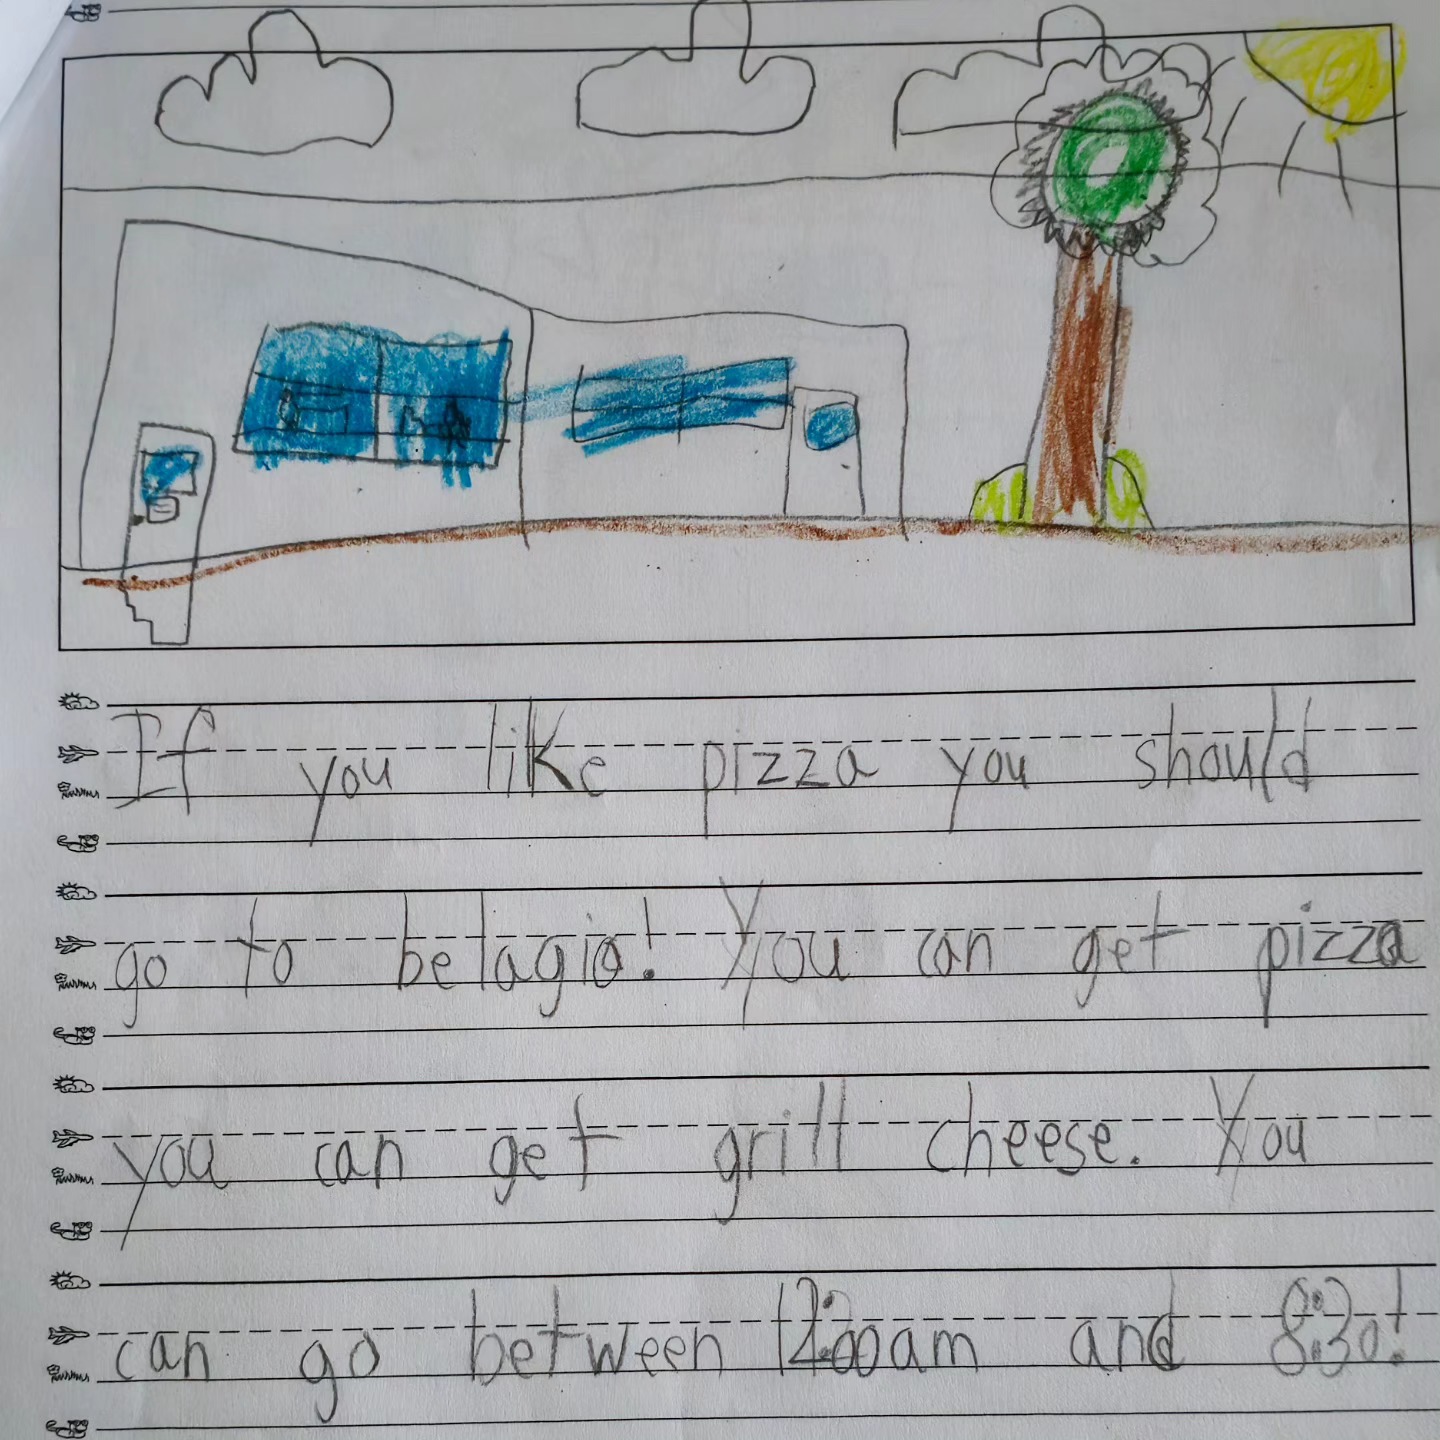 If you like pizza you should
go to belagio! You can get pizza
you can get grill cheese. You
can go between 12:00am and 8:30!